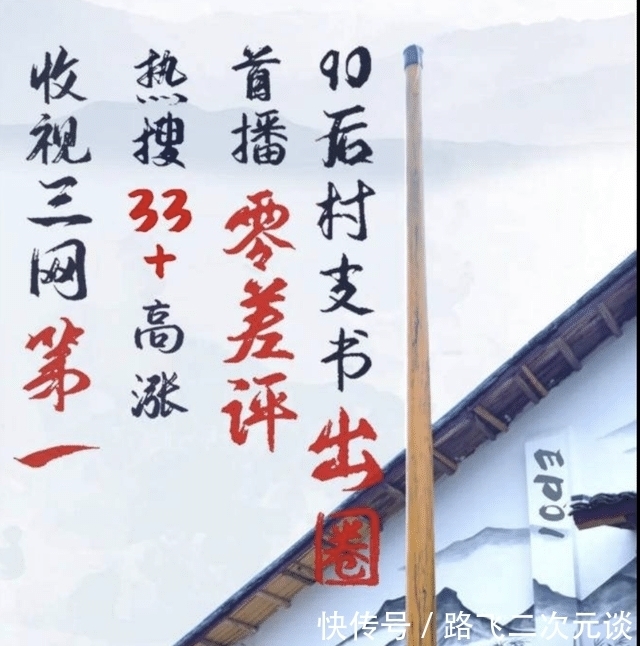 90后村支书出圈
首播零差评
热搜33+高涨
收视三网第一
EP01
快传号/路飞二次元谈